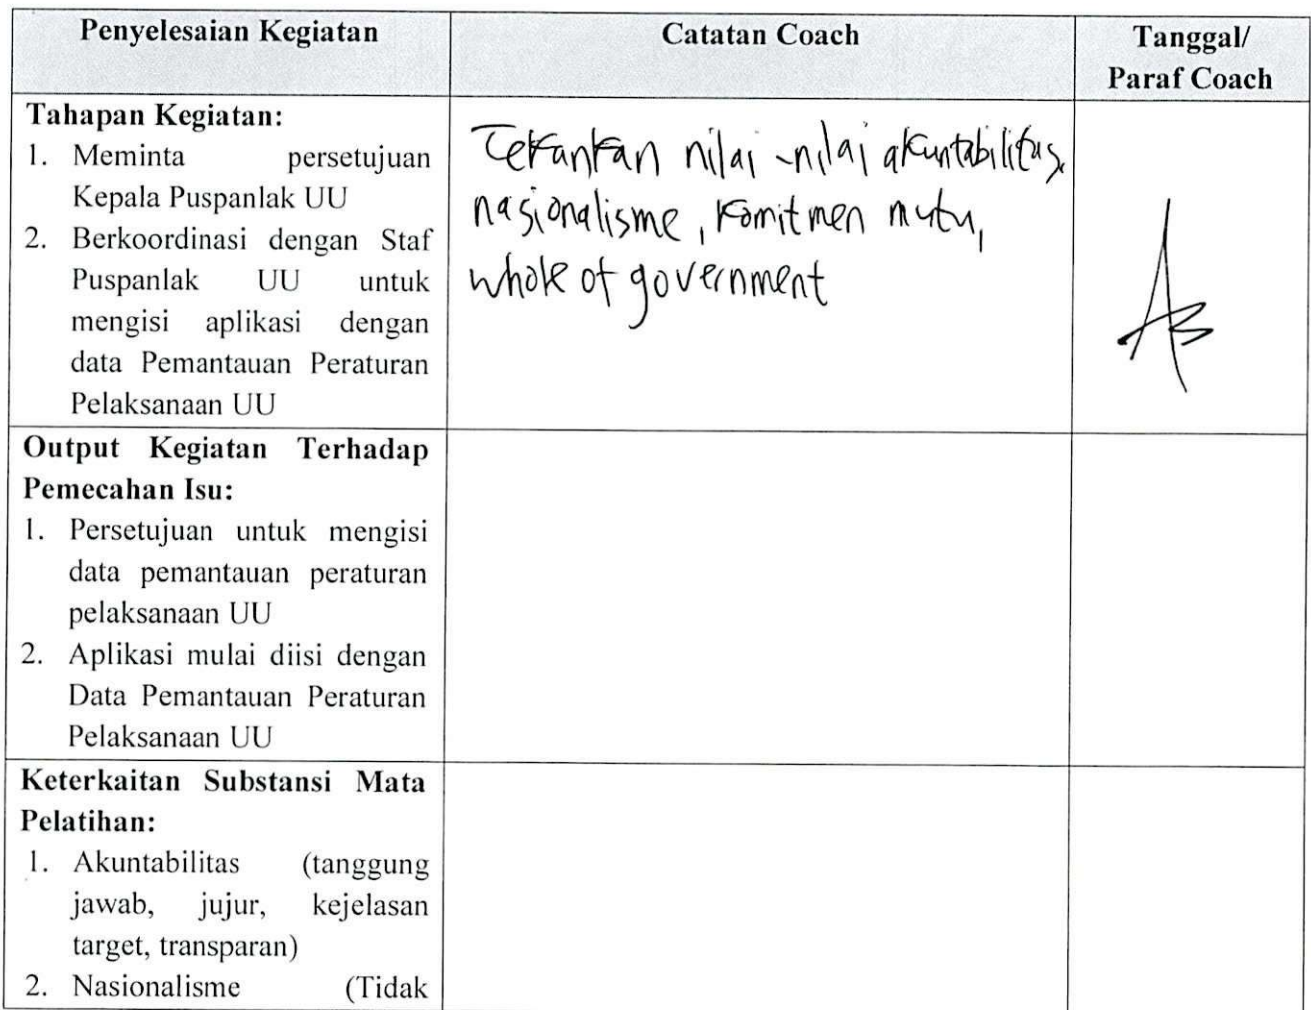 Penyelesaian Kegiatan
Catatan Coach
Tanggal/
Paraf Coach
Tahapan Kegiatan:
1. Meminta persetujuan
Kepala Puspanlak UU
2. Berkoordinasi dengan Staf
Puspanlak UU untuk
mengisi aplikasi dengan
data Pemantauan Peraturan
Pelaksanaan UU
Tekankan nilai-nilai akuntabilitas,
nasionalisme, komitmen mutu,
whole of government
Output Kegiatan Terhadap
Pemecahan Isu:
1. Persetujuan untuk mengisi
data pemantauan peraturan
pelaksanaan UU
2. Aplikasi mulai diisi dengan
Data Pemantauan Peraturan
Pelaksanaan UU
Keterkaitan Substansi Mata
Pelatihan:
1. Akuntabilitas (tanggung
jawab, jujur, kejelasan
target, transparan)
2. Nasionalisme (Tidak